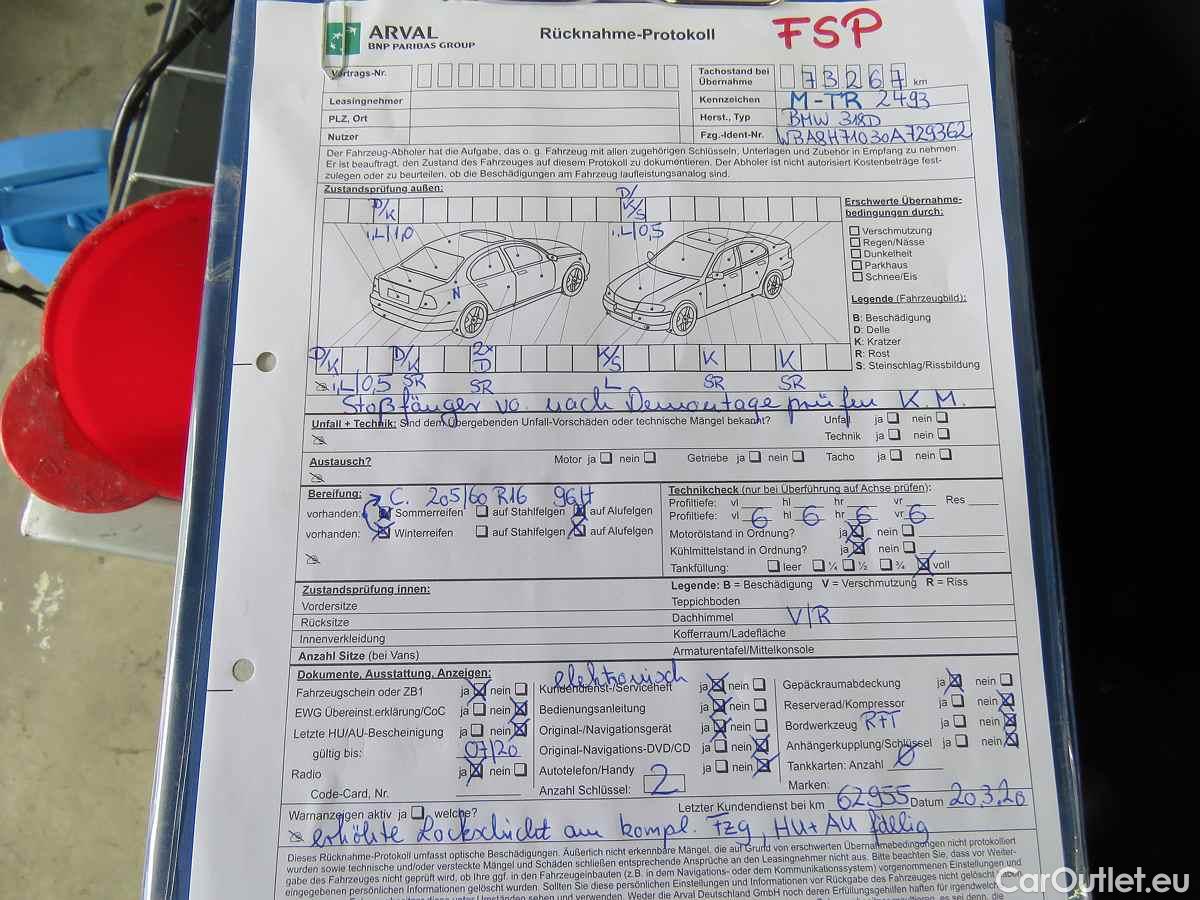 ARVAL
BNP PARIBAS GROUP
Rücknahme-Protokoll
FSP
Vertrags-Nr.
Tachostand bei Übernahme 73267 km
Leasingnehmer
Kennzeichen M-TR 2493
PLZ, Ort
Herst., Typ BMW 318D
Nutzer
Fzg.-Ident-Nr. WBA8H71030A729362
Der Fahrzeug-Abholer hat die Aufgabe, das o. g. Fahrzeug mit allen zugehörigen Schlüsseln, Unterlagen und Zubehör in Empfang zu nehmen.
Er ist beauftragt, den Zustand des Fahrzeuges auf diesem Protokoll zu dokumentieren. Der Abholer ist nicht autorisiert Kostenbeträge fest-
zulegen oder zu beurteilen, ob die Beschädigungen am Fahrzeug laufleistungsanalog sind.
Zustandsprüfung außen:
D/K
D/K/S
, L/1,0
, L/0,5
N
Erschwerte Übernahme-
bedingungen durch:
Verschmutzung
Regen/Nässe
Dunkelheit
Parkhaus
Schnee/Eis
Legende (Fahrzeugbild):
B: Beschädigung
D: Delle
K: Kratzer
R: Rost
S: Steinschlag/Rissbildung
D/K D/K 2x D K/S K K
, L/0,5 SR SR L SR SR
Stoßfänger vo. nach Demontage prüfen K.M.
Unfall + Technik: Sind dem Übergebenden Unfall-Vorschäden oder technische Mängel bekannt? Unfall ja nein
Technik ja nein
Austausch? Motor ja nein Getriebe ja nein Tacho ja nein
Bereifung: C. 205/60 R16 96H
vorhanden: Sommerreifen auf Stahlfelgen auf Alufelgen
vorhanden: Winterreifen auf Stahlfelgen auf Alufelgen
Technikcheck (nur bei Überführung auf Achse prüfen):
Profiltiefe: vl hl hr vr Res
Profiltiefe: vl 6 hl 6 hr 6 vr 6
Motorölstand in Ordnung? ja nein
Kühlmittelstand in Ordnung? ja nein
Tankfüllung: leer ¼ ½ ¾ voll
Zustandsprüfung innen:
Legende: B = Beschädigung V = Verschmutzung R = Riss
Vordersitze
Teppichboden
Rücksitze
Dachhimmel V/R
Innenverkleidung
Kofferraum/Ladefläche
Anzahl Sitze (bei Vans)
Armaturentafel/Mittelkonsole
Dokumente, Ausstattung, Anzeigen:
elektronisch
Fahrzeugschein oder ZB1 ja nein
Kundendienst-/Serviceheft ja nein
Gepäckraumabdeckung ja nein
EWG Übereinst.erklärung/CoC ja nein
Bedienungsanleitung ja nein
Reserverad/Kompressor ja nein
Letzte HU/AU-Bescheinigung ja nein
Original-/Navigationsgerät ja nein
Bordwerkzeug RFT ja nein
gültig bis: 07/20
Original-Navigations-DVD/CD ja nein
Anhängerkupplung/Schlüssel ja nein
Radio ja nein
Autotelefon/Handy ja nein
Tankkarten: Anzahl 0
Code-Card, Nr.
Anzahl Schlüssel: 2
Marken:
Warnanzeigen aktiv ja welche?
Letzter Kundendienst bei km 62955 Datum 20.3.20
erhöhte Lackschicht am kompl. Fzg, HU+AU fällig
Dieses Rücknahme-Protokoll umfasst optische Beschädigungen. Äußerlich nicht erkennbare Mängel, die auf Grund von erschwerten Übernahmebedingungen nicht protokolliert
wurden sowie technische und/oder versteckte Mängel und Schäden schließen entsprechende Ansprüche an den Leasingnehmer nicht aus. Bitte beachten Sie, dass vor Weiter-
gabe des Fahrzeuges nicht geprüft wird, ob Ihre ggf. in den Fahrzeugeinbauten (z.B. in dem Navigations- oder dem Kommunikationssystem) vorgenommenen Einstellungen und
eingegebenen persönlichen Informationen gelöscht wurden. Sollten Sie diese persönlichen Einstellungen und Informationen vor Rückgabe des Fahrzeugs nicht gelöscht haben
CarOutlet.eu